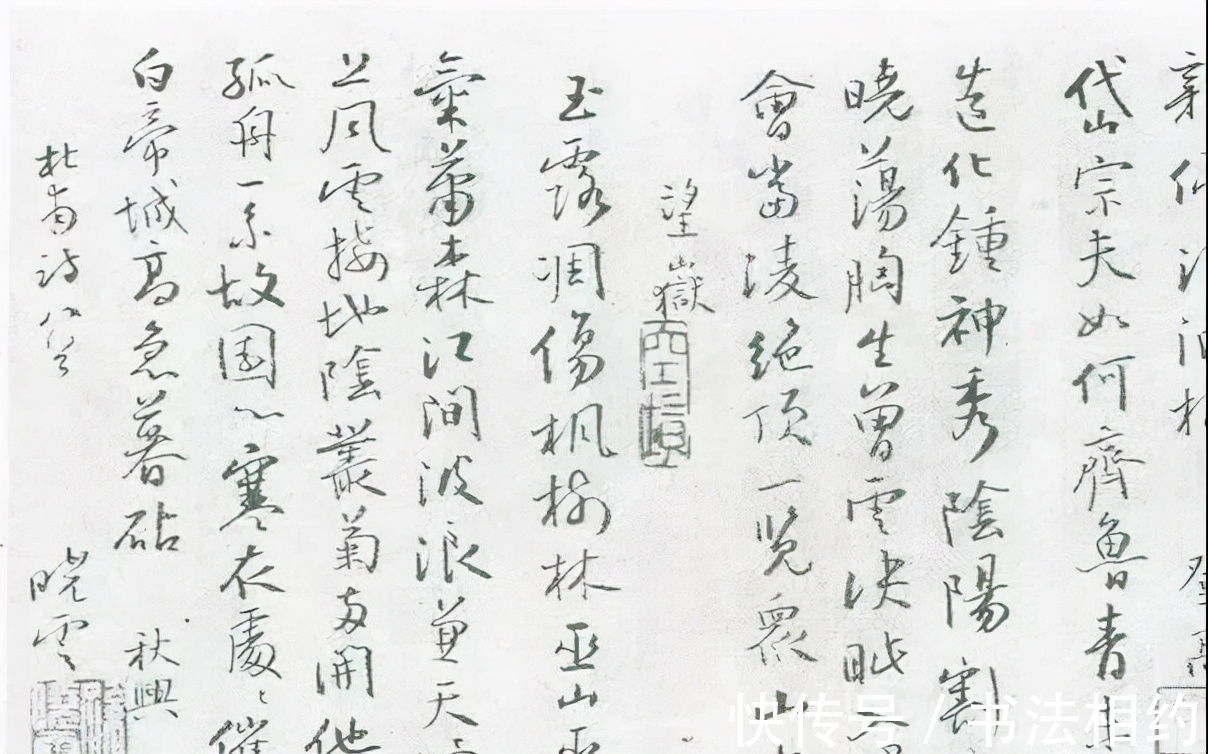 岱宗夫如何齊魯青
造化鍾神秀陰陽割
曉蕩胸生曾雲決眥
會當凌絕頂一览眾山
望嶽
玉露凋傷枫樹林巫山巫
氣蕭森江間波浪兼天
上风雲接地陰叢菊兩開他
孤舟一系故園心寒衣處々催
白帝城高急暮砧 秋興
杜甫詩八首 曉雲
快传号 / 书法相约